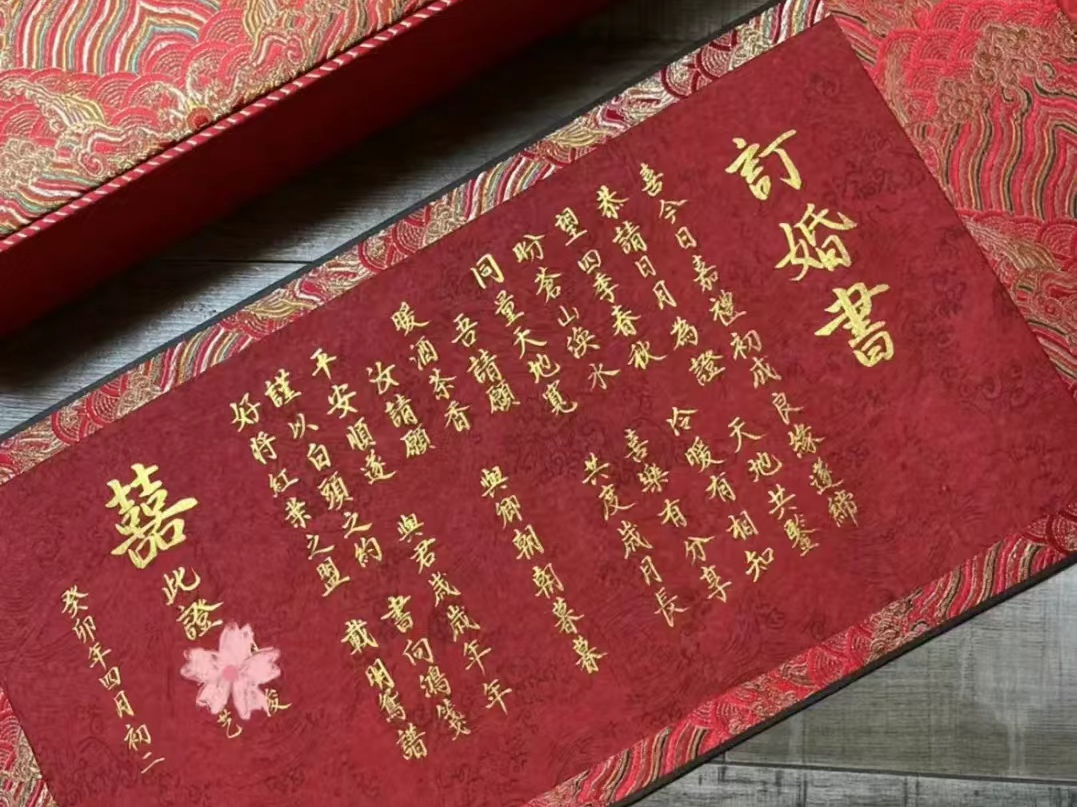 訂婚書
喜今日嘉禮初成 良緣遂締
恭請日月為證 天地共鑒
望四季春秋 冷暖有相知
盼蒼山渙水 喜樂有分享
同量天地寬 共度歲月長
吾請願
暖酒茶香 與卿朝朝暮暮
汝請願
平安順遂 與君歲歲年年
謹以白頭之約 書向鴻箋
好將紅葉之盟 載明鴛譜
囍
此證
俊
艺
癸卯年四月初二